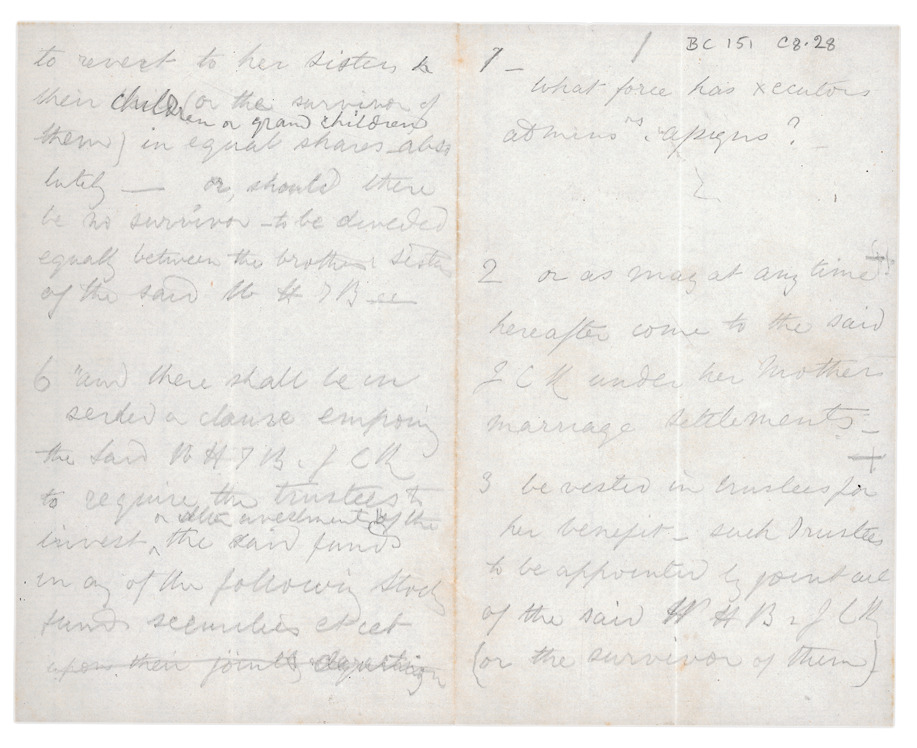 to revert to her sisters &
their children or grand children (or the survivor of
them) in equal shares abso
lutely — or, should there
be no survivor - to be divided
equally between the brothers & sisters
of the said W H I B
6 "and there shall be in
serted a clause
the said W H I B & J C K
to require the trustees to
invest or alter investment of the the said funds
in any of the following stocks
funds securities et cet
upon their joint
BC 151 C8.28
1 —
what force has xecutors
admins & assigns?
2 or as may at any time
hereafter come to the said
J C K under her Mother's
marriage settlements —
3 be vested in trustees for
her benefit — such Trustees
to be appointed by joint act
of the said W H B & J C K
(or the survivor of them)